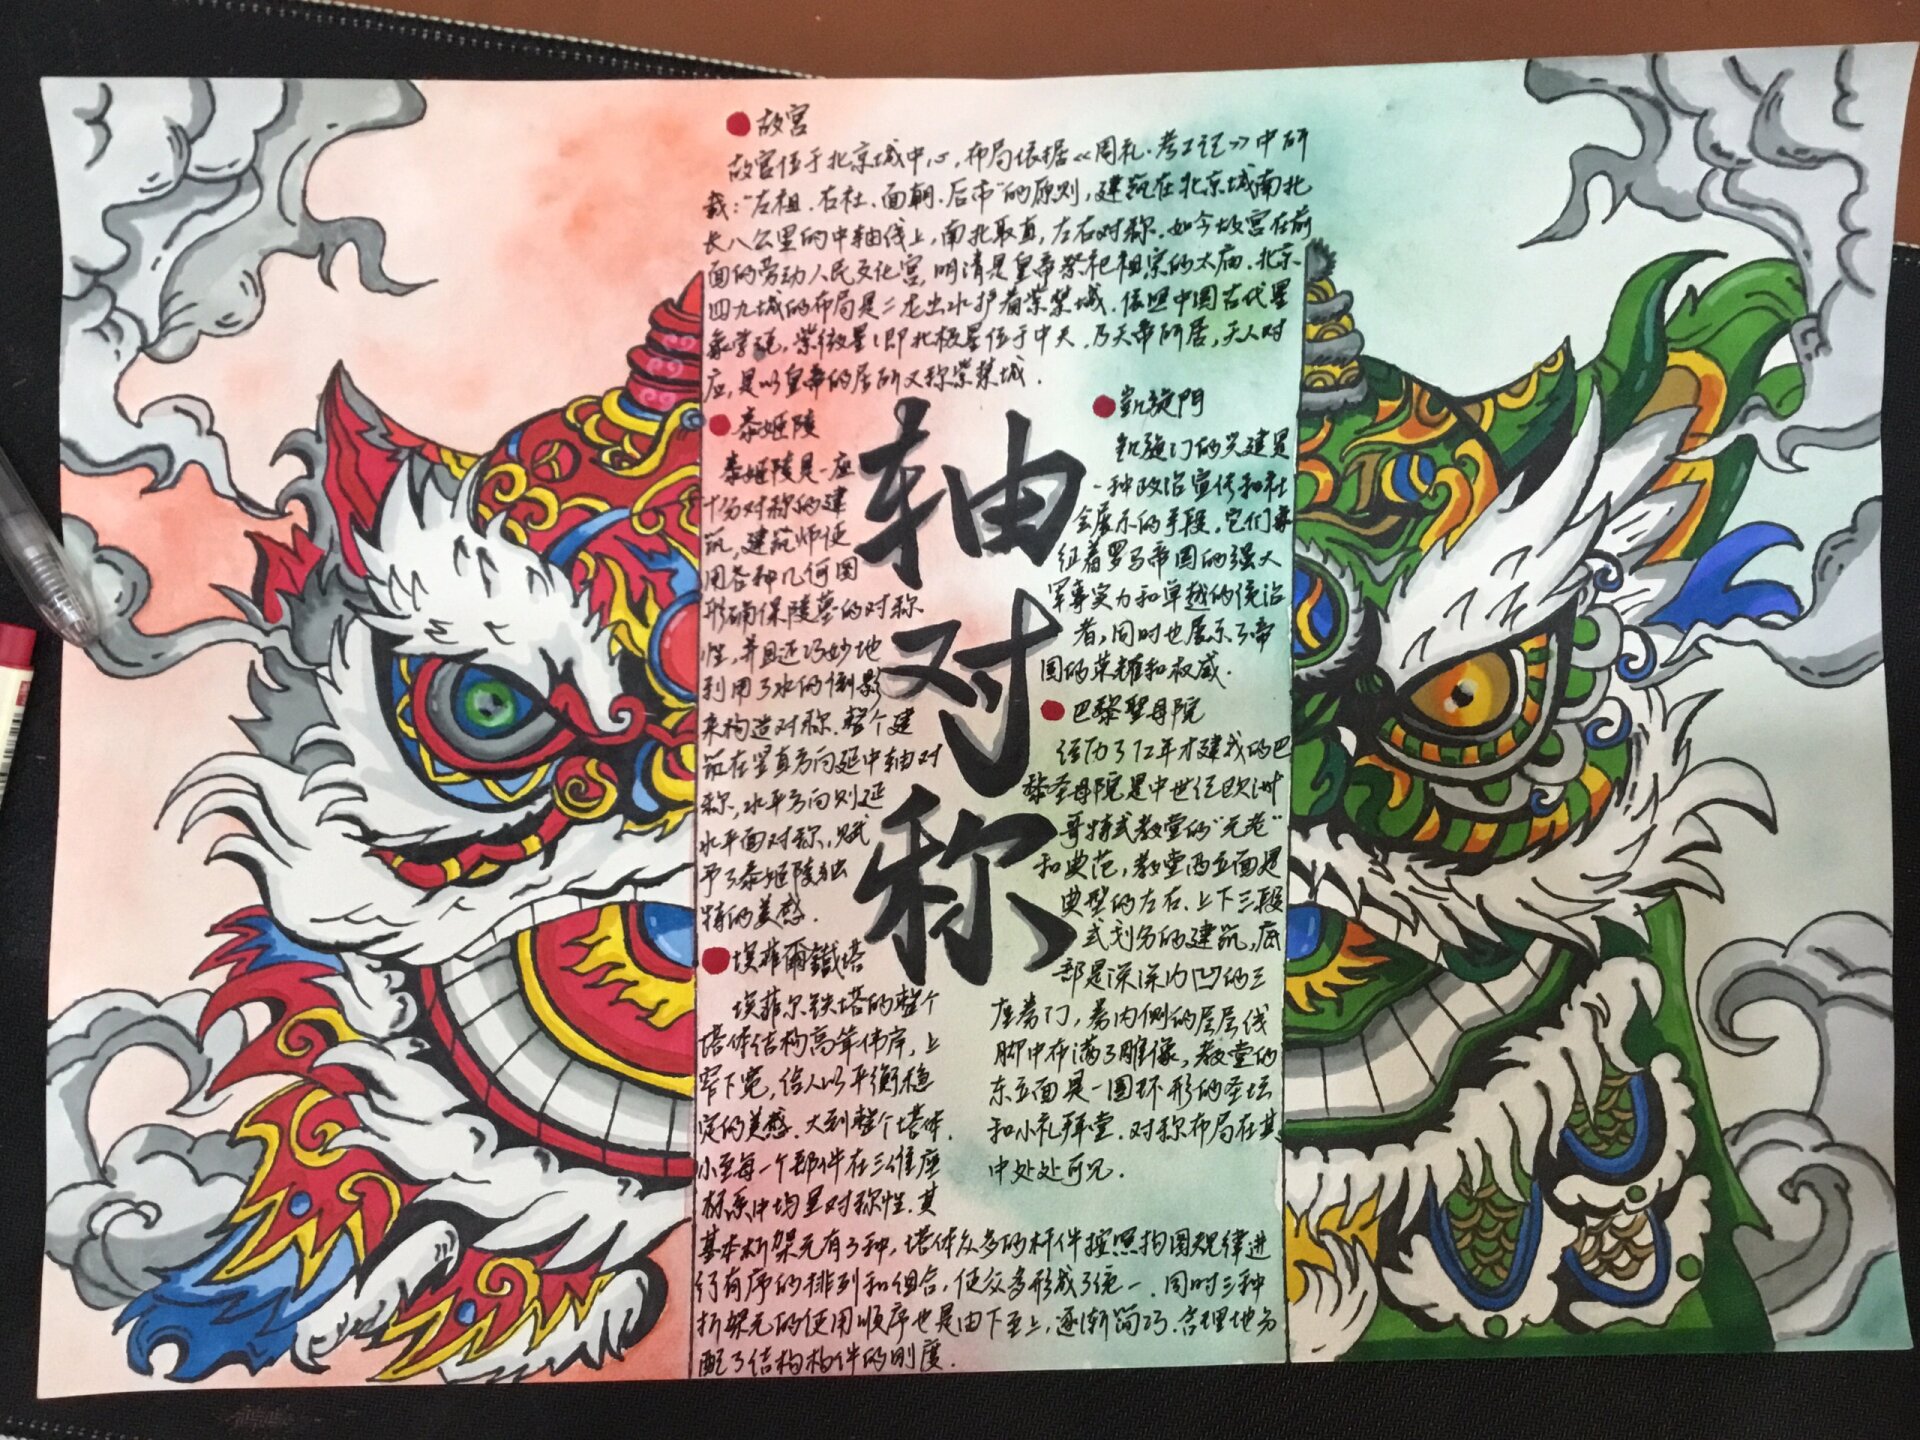 故宫
故宫位于北京城中心，布局依据《周礼·考工记》中所
载：“左祖、右社、面朝、后市”的原则，建筑在北京城南北
长八公里的中轴线上，南北取直，左右对称．如今故宫在前
面的劳动人民文化宫，明清是皇帝祭祀祖宗的太庙．北京
四九城的布局是二龙出水护着紫禁城．依照中国古代星
象学说，紫微星（即北极星位于中天，乃天帝所居，天人对
应，是以皇帝的居所又称紫禁城．
泰姬陵
泰姬陵是一座
十分对称的建
筑，建筑师使
用各种几何图
形确保陵墓的对称
性，并且还巧妙地
利用了水的倒影
来构造对称．整个建
筑在竖直方向延中轴对
称，水平方向则延
水平面对称，赋
予了泰姬陵独
特的美感．
埃菲爾鐵塔
埃菲尔铁塔的整个
塔体结构高耸伟岸，上
窄下宽，给人以平衡稳
定的美感．大到整个塔体，
小至每一个部件在三维座
标系中均呈对称性．其
基本析架元有3种，塔体众多的杆件按照构图规律进
行有序的排列和组合，使众多形成了统一．同时三种
析架元的使用顺序也是由下至上，逐渐简巧．合理地分
配了结构构件的刚度．
轴
对
称
凱旋門
凯旋门的兴建是
一种政治宣传和社
会展示的手段，它们象
征着罗马帝国的强大
军事实力和卓越的统治
者，同时也展示了帝
国的荣耀和权威．
巴黎聖母院
经历了72年才建成的巴
黎圣母院是中世纪欧洲
哥特式教堂的“元老”
和典范，教堂西立面是
典型的左右、上下三段
式划分的建筑，底
部是深深内凹的三
座券门，券内侧的层层线
脚中布满了雕像，教堂的
东立面是一圈环形的圣坛
和小礼拜堂．对称布局在其
中处处可见．